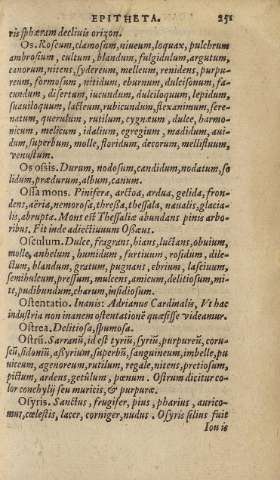 EPITHETA. 251
ris sphæram decliuis orizon.
Os. Roseum, clamosum, niueum, loquax, pulchrum
ambrosium, cultum, blandum, fulgidulum, argutum,
canorum, nitens, sydereum, melleum, renidens, purpu-
reum, formosum, nitidum, eburnum, dulcisonum, fa-
cundum, disertum, iucundum, dulciloquum, lepidum,
suauiloquum, lacteum, rubicundum, flexanimum, sere-
natum, querulum, rutilum, cygnæum, dulce, harmo-
nicum, melicum, idalium, egregium, madidum, auí-
dum, superbum, molle, floridum, decorum, mellifluum,
venustum.
Os ossis. Durum, nodosum, candidum, nodatum, so
lidum, prædurum, album, canum.
Ossa mons. Pinifera, arctoa, ardua, gelida, fron-
dens, aëria, nemorosa, thressa, thessala, naualis, glacia-
lis, abrupta. Mons est Thessaliæ abundans pinis arbo-
ribus. Fit inde adiectiuum Ossæus.
Osculum. Dulce, fragrans, hians, luctans, obuium,
molle, anhelum, humidum, furtiuum, rosidum, dile-
ctum, blandum, gratum, pugnans, ebrium, lasciuum,
semihulcum, pressum, mulcens, amicum, delitiosum, mi-
te, ludibundum, charum, insidiosum.
Ostentatio. Inanis: Adrianus Cardinalis, Vt hac
industria non inanem ostentationē quæsisse videamur.
Ostrea. Delitiosa, spumosa.
Ostrū. Sarranū, id est tyriū, syriū, purpureū, coru-
scū, sidoniū, assyrium, superbū, sanguineum, imbelle, pu
niceum, agenoreum, rutilum, regale, nitens, pretiosum,
pictum, ardens, getulum, pœnum. Ostrum dicitur co-
lor conchylij seu muricis, & purpuræ.
Osyris. Sanctus, frugifer, pius, pharius, aurico-
mus, cælestis, lacer, corniger, nudus. Osyris filius fuit
Iouis